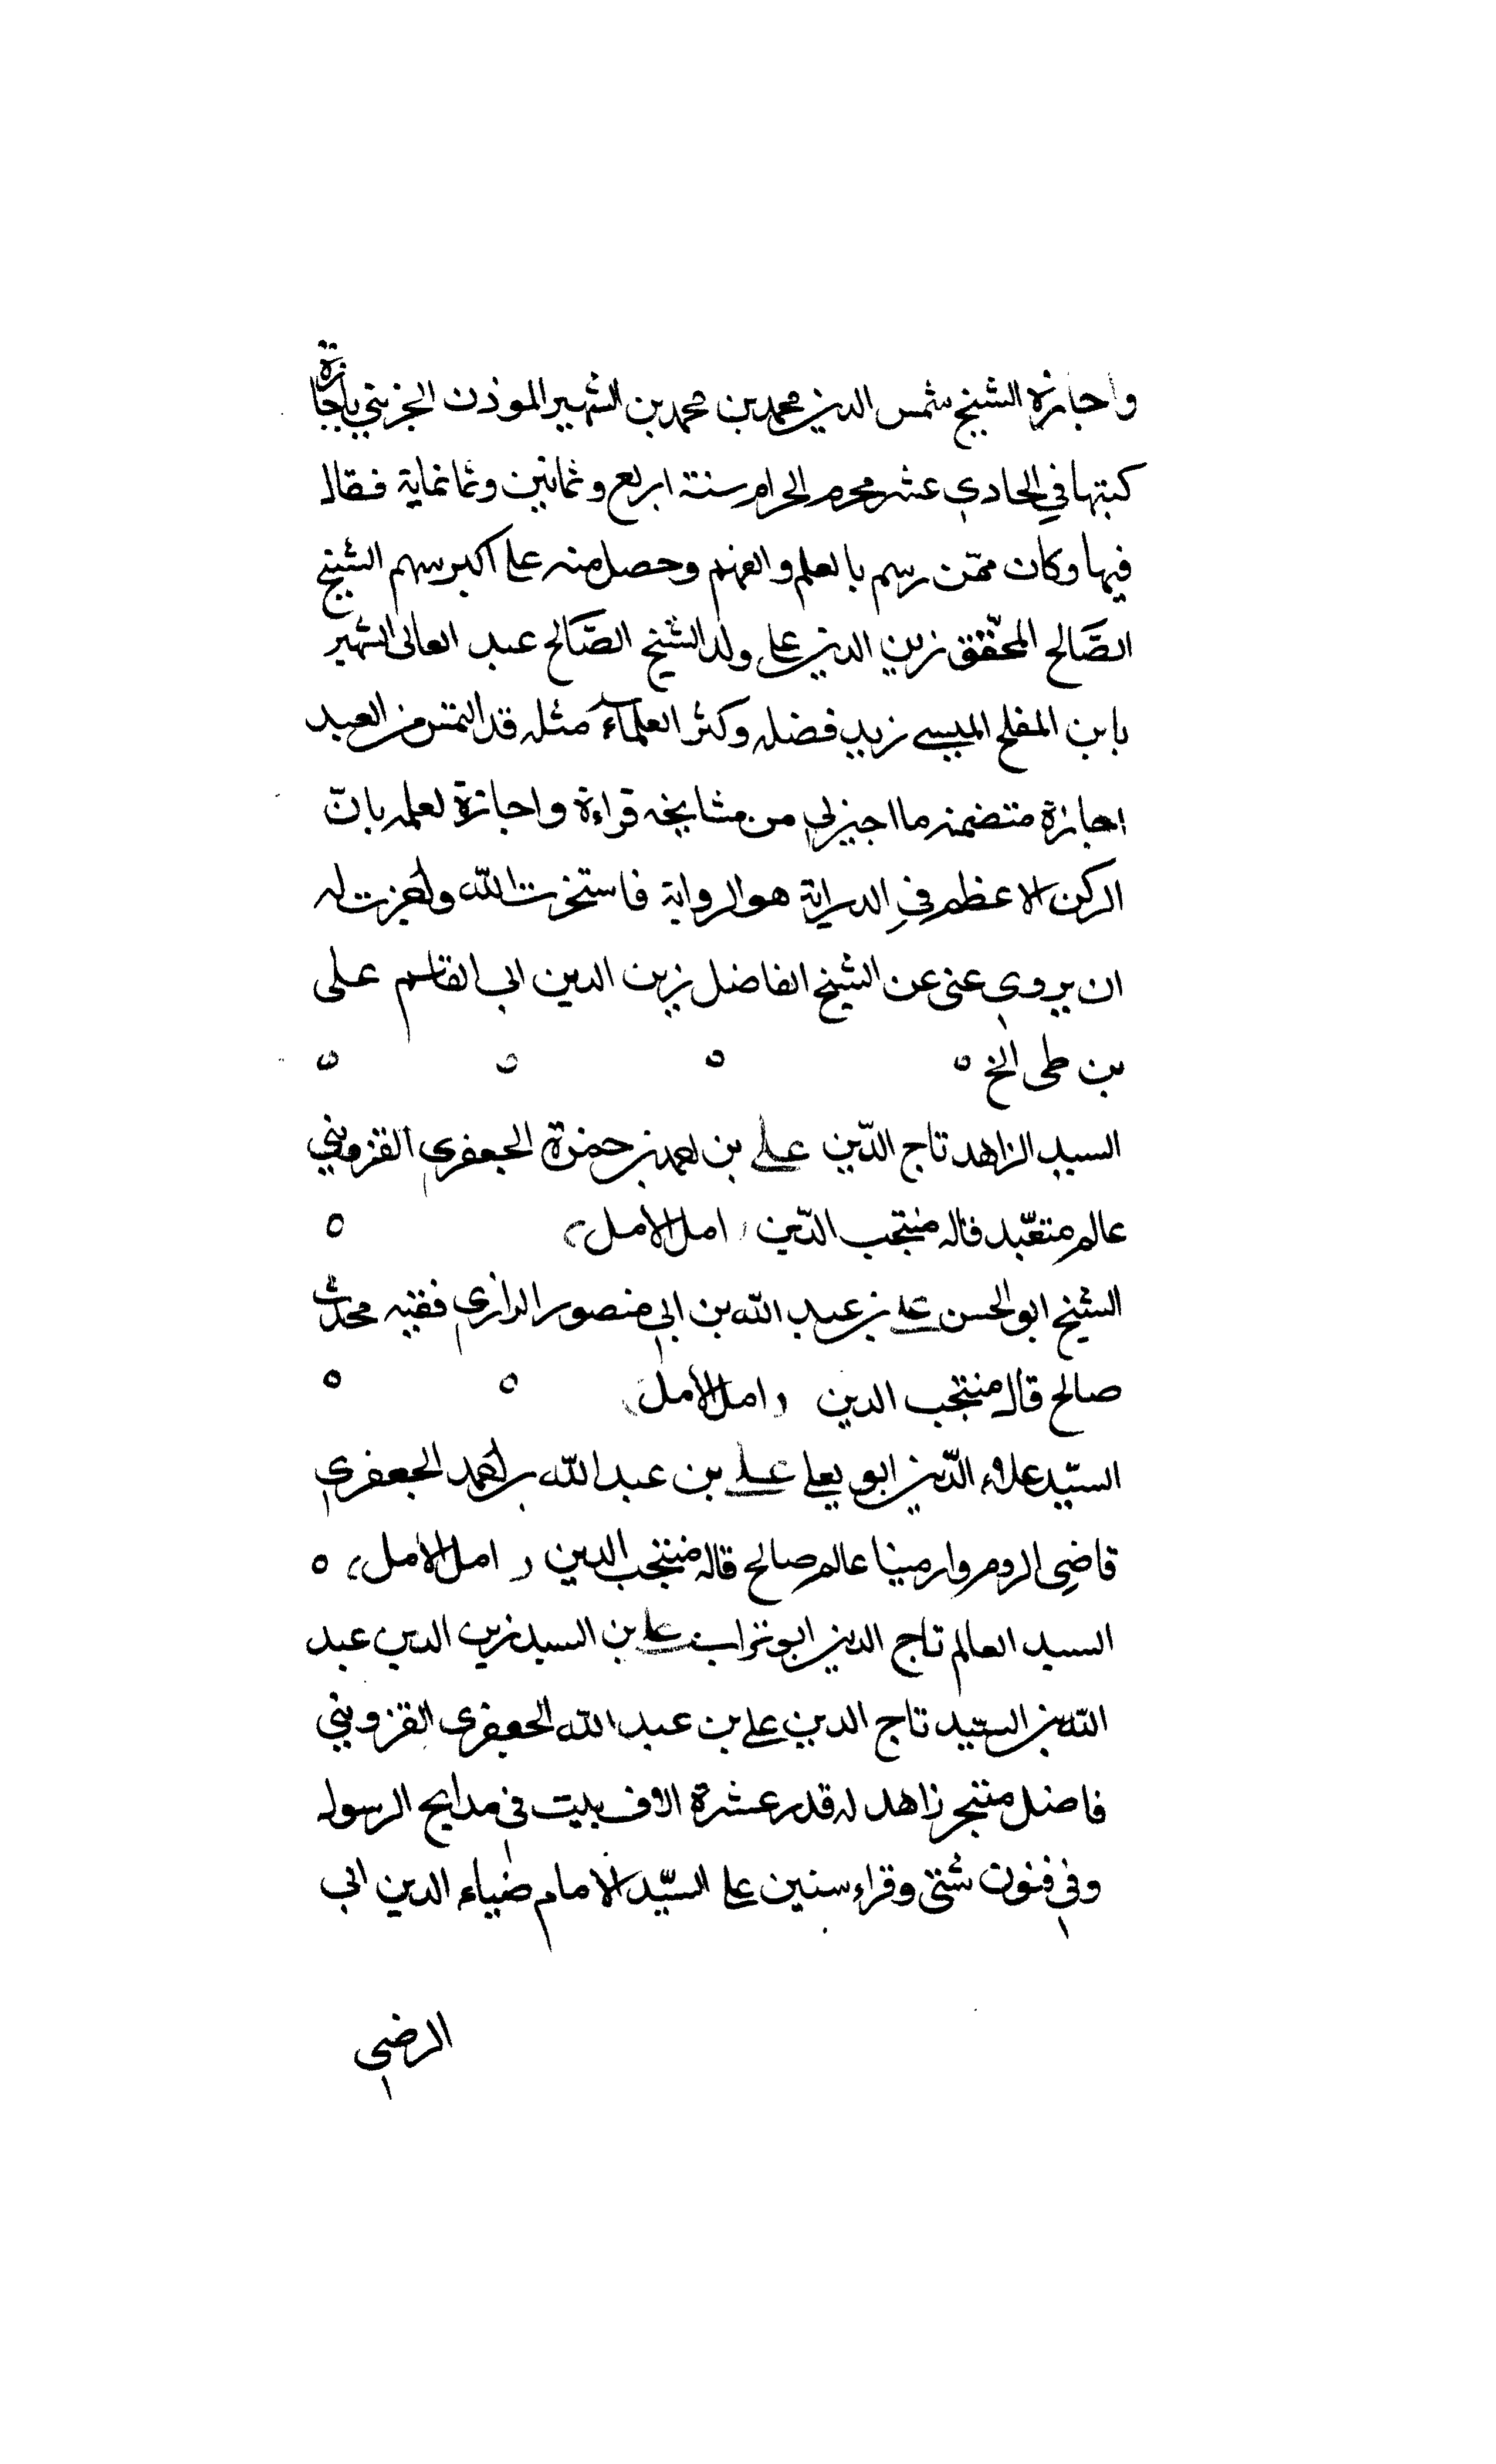 واجازة الشيخ شمس الدين محمد بن محمد بن الشهير الموذن الجزيني باجازة
كتبها في الحادي عشر محرم الحرام سنة اربع وثمانين وثمانماية فقال
فيها وكان ممّن رسم بالعلم والفهم وحصل منه على اكبر سهم الشيخ
الصَّالح المحقّق زين الدين على ولد الشيخ الصَّالح عبد العالى الشهير
بابن المفلح الميسي زيد فضله وكثر العلماء مثله قد التمس من العبد
اجازة متضمنه ما اجيز لي من مشايخه قراءة واجازة لعلمه بانّ
الركن الاعظم في الدراية هو الرواية فاستخرت الله واجزت له
ان يروي عنى عن الشيخ الفاضل زين الدين ابى القاسم على
بن طى الخ ٥ ٥ ٥ ٥
السيد الزاهد تاج الدّين على بن احمد بن حمزة الجعفري القزويني
عالم متعّبد قاله منتجب الدّين (امل الامل) ٥
الشيخ ابو الحسن على بن عبد الله بن ابي منصور الرازي فقيه محدث
صالح قاله منتجب الدين (امل الامل) ٥ ٥
السيّد علاء الدّين ابو يعلى على بن عبد الله بن احمد الجعفري
قاضى الروم وارمينا عالم صالح قاله منتجب الدين (امل الامل) ٥
السيد العالم تاج الدين ابو تراب على بن السيد زين الدين عبد
الله بن السيّد تاج الدين على بن عبد الله الجعفرى القزويني
فاضل متبحر زاهد له قدر عشرة الاف بيت في مدايح الرسول
وفي فنون شتى وقراء سنين على السيّد الامام ضياء الدين ابى
الرضي